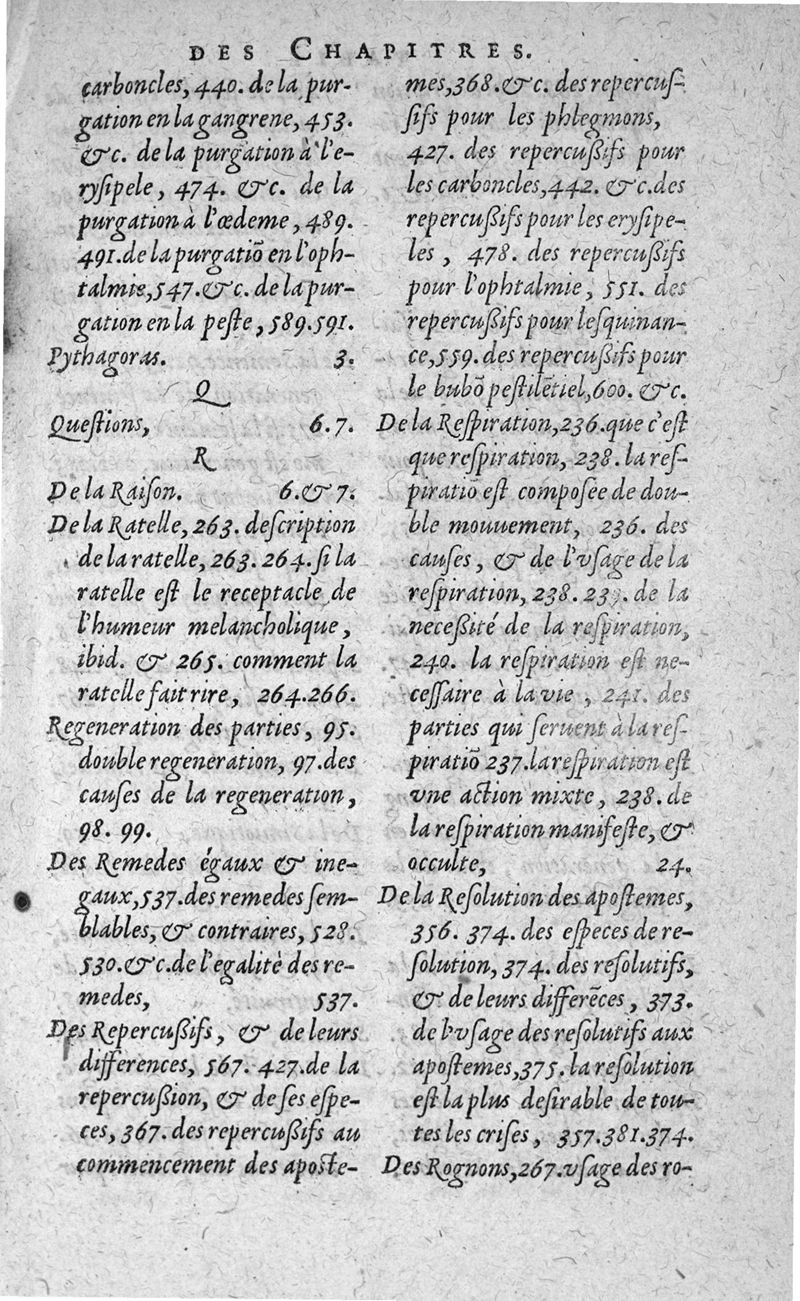 DES CHAPITRES.
carboncles, 440. de la pur-
gation en la gangrene, 453.
&c. de la purgation à l'e-
rysipele, 474. &c. de la
purgation à l'œdeme, 489.
491. de la purgatiõ en l'oph-
talmie, 547. &c. de la pur-
gation en la peste, 589. 591.
Pythagoras. 3.
Q
Questions, 6. 7.
R
De la Raison. 6. & 7.
De la Ratelle, 263. description
de la ratelle, 263. 264. si la
ratelle est le receptacle de
l'humeur melancholique,
ibid. & 265. comment la
ratelle fait rire, 264. 266.
Regeneration des parties, 95.
double regeneration, 97. des
causes de la regeneration,
98. 99.
Des Remedes égaux & ine-
gaux, 537. des remedes sem-
blables, & contraires, 528.
530. &c. de l'egalité des re-
medes, 537.
Des Repercußifs, & de leurs
differences, 567. 427. de la
repercußion, & de ses espe-
ces, 367. des repercußifs au
commencement des aposte-
mes, 368. &c. des repercus-
sifs pour les phlegmons,
427. des repercußifs pour
les carboncles, 442. &c. des
repercußifs pour les erysipe-
les, 478. des repercußifs
pour l'ophtalmie, 551. des
repercußifs pour lesquinan-
ce, 559. des repercußifs pour
le bubõ pestilẽtiel, 600. &c.
De la Respiration, 236. que c'est
que respiration, 238. la res-
piratiõ est composée de dou-
ble mouuement, 236. des
causes, & de l'vsage de la
respiration, 238. 239. de la
neceßité de la respiration,
240. la respiration est ne-
cessaire à la vie, 241. des
parties qui seruent à la res-
piratiõ 237. la respiration est
vne action mixte, 238. de
la respiration manifeste, &
occulte, 24.
De la Resolution des apostemes,
356. 374. des especes de re-
solution, 374. des resolutifs,
& de leurs differẽces, 373.
de l'vsage des resolutifs aux
apostemes, 375. la resolution
est la plus desirable de tou-
tes les crises, 357. 381. 374.
Des Rognons, 267. vsage des ro-